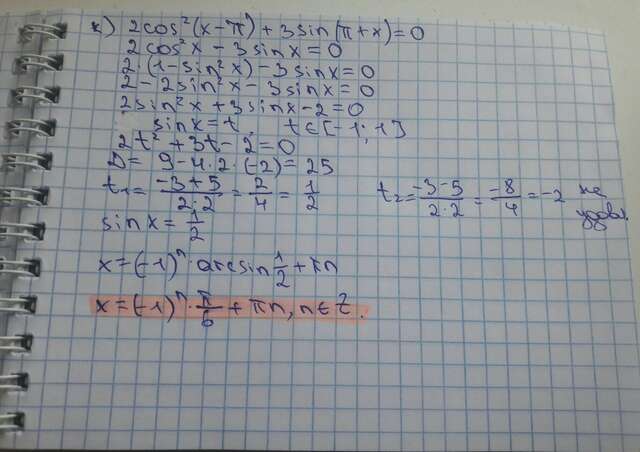 к) 2cos²(x-π)+3sin(π+x)=0
2cos²x-3sinx=0
2(1-sin²x)-3sinx=0
2-2sin²x-3sinx=0
2sin²x+3sinx-2=0
sinx=t, t∈[-1;1]
2t²+3t-2=0
D=9-4·2·(-2)=25
t₁=(-3+5)/(2·2)=2/4=1/2 t₂=(-3-5)/(2·2)=-8/4=-2 не удов.
sinx=1/2
x=(-1)ⁿ·arcsin1/2+πn
x=(-1)ⁿ·π/6+πn, n∈Z.